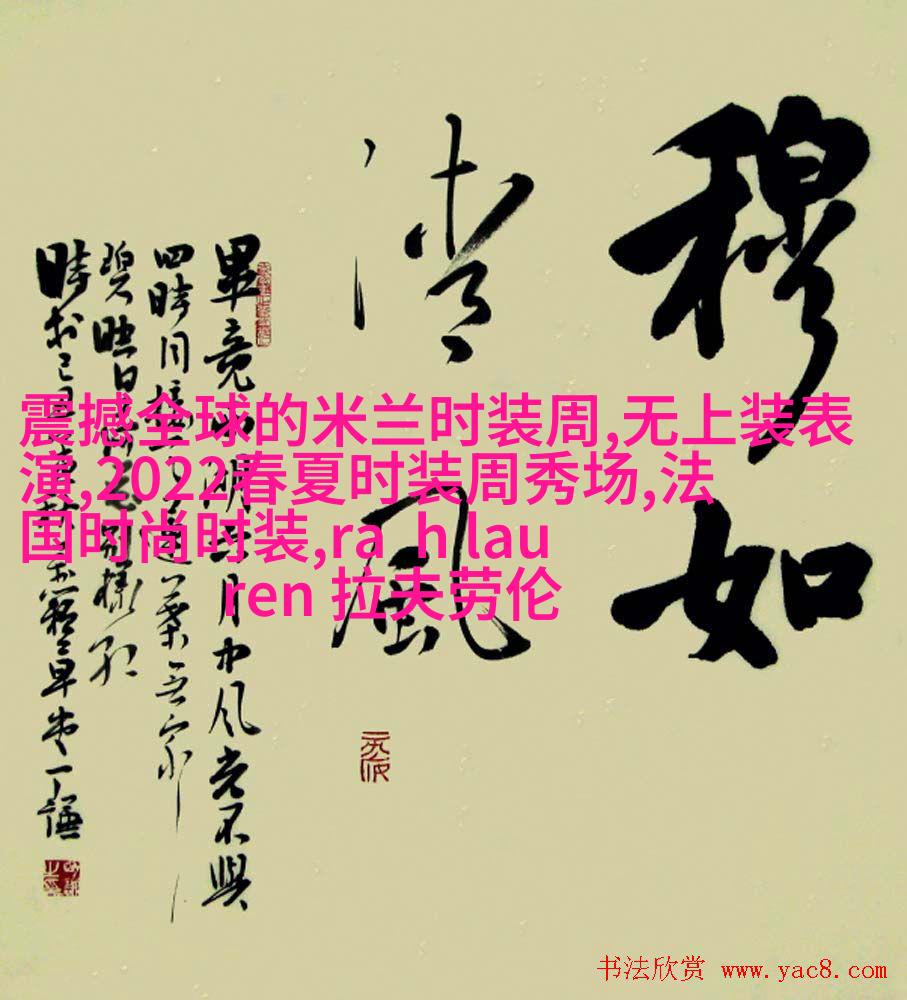 穆如
清風
畢竟 月中风光不與
四時同接 蓮葉無窮
碧映日 別樣紅
時 早 一謙
震撼全球的米兰时装周,无上装表
演,2022春夏时装周秀场,法
国时尚时装,ra h lau
ren 拉夫劳伦
书法欣赏 www.yac8.com